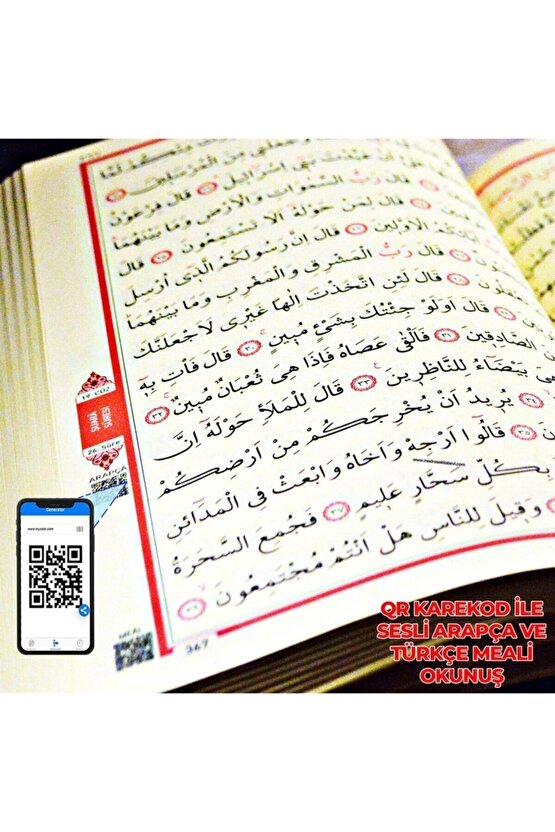 وَجَعَلَنِي مِنَ الْمُرْسَلِينَ ٢١
اَنْ عَبَّدْتَ بَنِي اِسْرَائِيلَ ٢٢ قَالَ فِرْعَوْنُ
قَالَ رَبُّ السَّمٰوَاتِ وَالْاَرْضِ وَمَا بَيْنَهُمَا
قَالَ لِمَنْ حَوْلَهُ اَلَا تَسْتَمِعُونَ ٢٥ قَالَ
اٰبَائِكُمُ الْاَوَّلِينَ ٢٦ قَالَ اِنَّ رَسُولَكُمُ الَّذِي اُرْسِلَ
قَالَ رَبُّ الْمَشْرِقِ وَالْمَغْرِبِ وَمَا بَيْنَهُمَا
قَالَ لَئِنِ اتَّخَذْتَ اِلٰهًا غَيْرِي لَاَجْعَلَنَّكَ
قَالَ اَوَلَوْ جِئْتُكَ بِشَيْءٍ مُبِينٍ ٣٠ قَالَ فَأْتِ بِهِ
الصَّادِقِينَ ٣١ فَاَلْقٰى عَصَاهُ فَاِذَا هِيَ ثُعْبَانٌ مُبِينٌ ٣٢
هِيَ بَيْضَاءُ لِلنَّاظِرِينَ ٣٣ قَالَ لِلْمَلَاِ حَوْلَهُ اِنَّ
يُرِيدُ اَنْ يُخْرِجَكُمْ مِنْ اَرْضِكُمْ
قَالُوا اَرْجِهْ وَاَخَاهُ وَابْعَثْ فِي الْمَدَائِنِ
بِكُلِّ سَحَّارٍ عَلِيمٍ ٣٧ فَجُمِعَ السَّحَرَةُ
وَقِيلَ لِلنَّاسِ هَلْ اَنْتُمْ مُجْتَمِعُونَ ٣٩
19. CÜZ
ŞUARA SURESİ
26. Sûre
ARAPÇA
MEAL
367
Generator
QR KAREKOD İLE
SESLİ ARAPÇA VE
TÜRKÇE MEALİ
OKUNUŞ